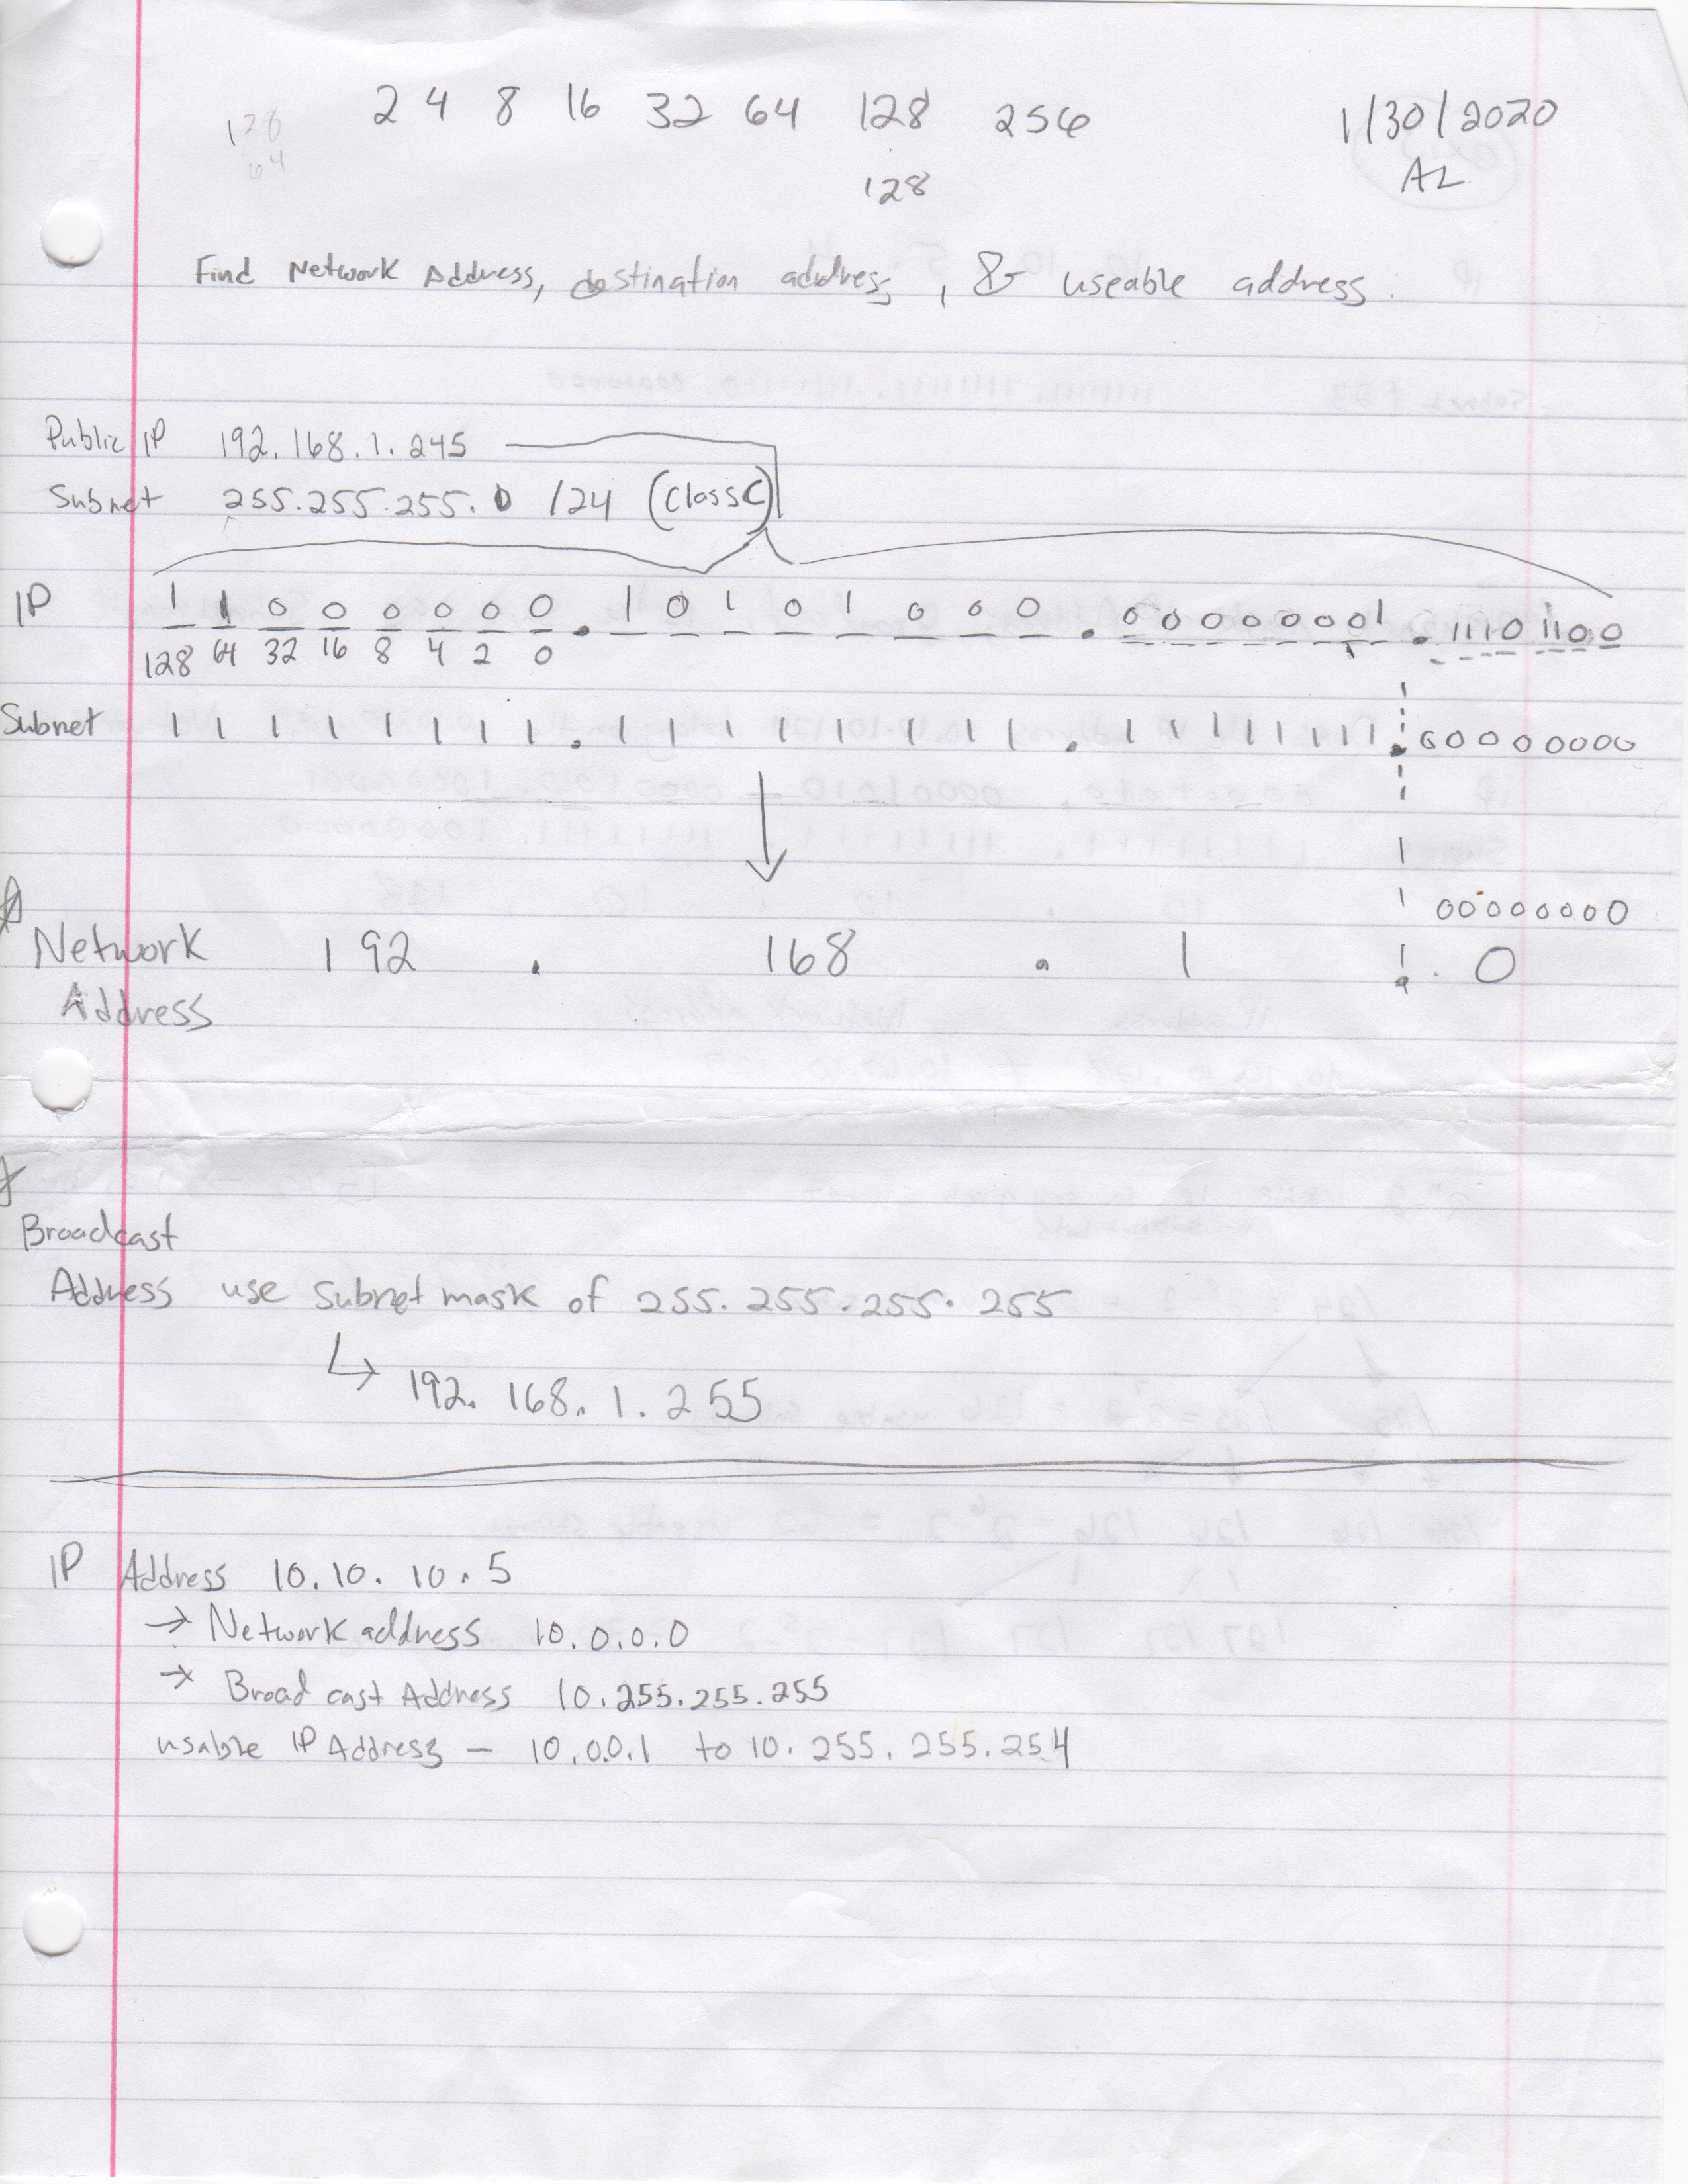 2 4 8 16 32 64 128 256
1/30/2020
128
64
128
AL
Find Network Address, destination address, & useable address.
Public IP 192.168.1.245
Subnet 255.255.255.0 /24 (Class C)
IP 1 1 0 0 0 0 0 0 . 1 0 1 0 1 0 0 0 . 0 0 0 0 0 0 0 1 . 1110 1100
128 64 32 16 8 4 2 0
Subnet 1 1 1 1 1 1 1 1 . 1 1 1 1 1 1 1 1 . 1 1 1 1 1 1 1 1 . 00000000
00000000
Network 192 . 168 . 1 . 0
Address
Broadcast
Address use subnet mask of 255.255.255.255
↳ 192.168.1.255
IP Address 10.10.10.5
→ Network address 10.0.0.0
→ Broad cast Address 10.255.255.255
usable IP Address - 10.0.0.1 to 10.255.255.254